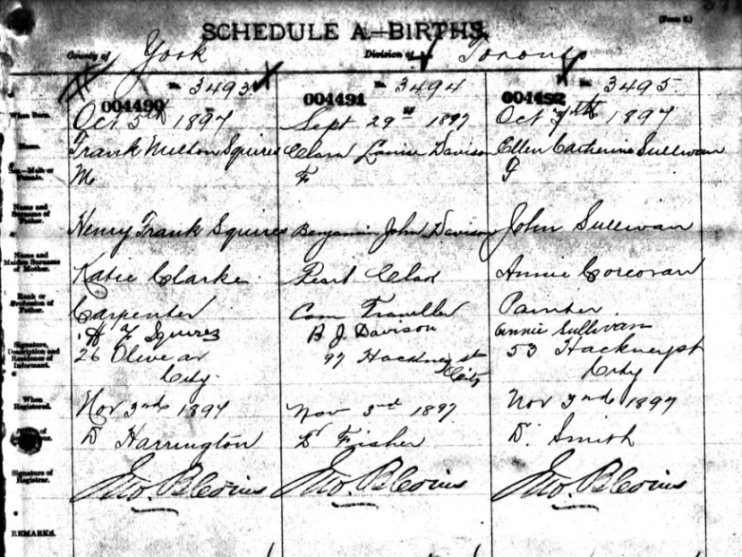 SCHEDULE A.—BIRTHS.
County of York Division of Toronto
No. 3493 No. 3494 No. 3495
004490 004491 004492
When Born. Oct 5th 1897 Sept 29th 1897 Oct 7th 1897
Name. Frank Milton Squires Clara Louise Davison Ellen Catherine Sullivan
Sex—Male or Female. M F F
Name and Surname of Father. Henry Frank Squires Benjamin John Davison John Sullivan
Name and Maiden Surname of Mother. Katie Clarke Pearl Annie Corcoran
Rank or Profession of Father. Carpenter Com Traveller Painter
Signature, Description and Residence of Informant. H F Squires B. J. Davison Annie Sullivan
26 Olive av 97 Hackney st 53 Hackney st
City. City City
When Registered. Nov 3rd 1897 Nov 3rd 1897
D Harrington D Fisher D. Smith
Signature of Registrar. Jno. Jno. Jno.
REMARKS.